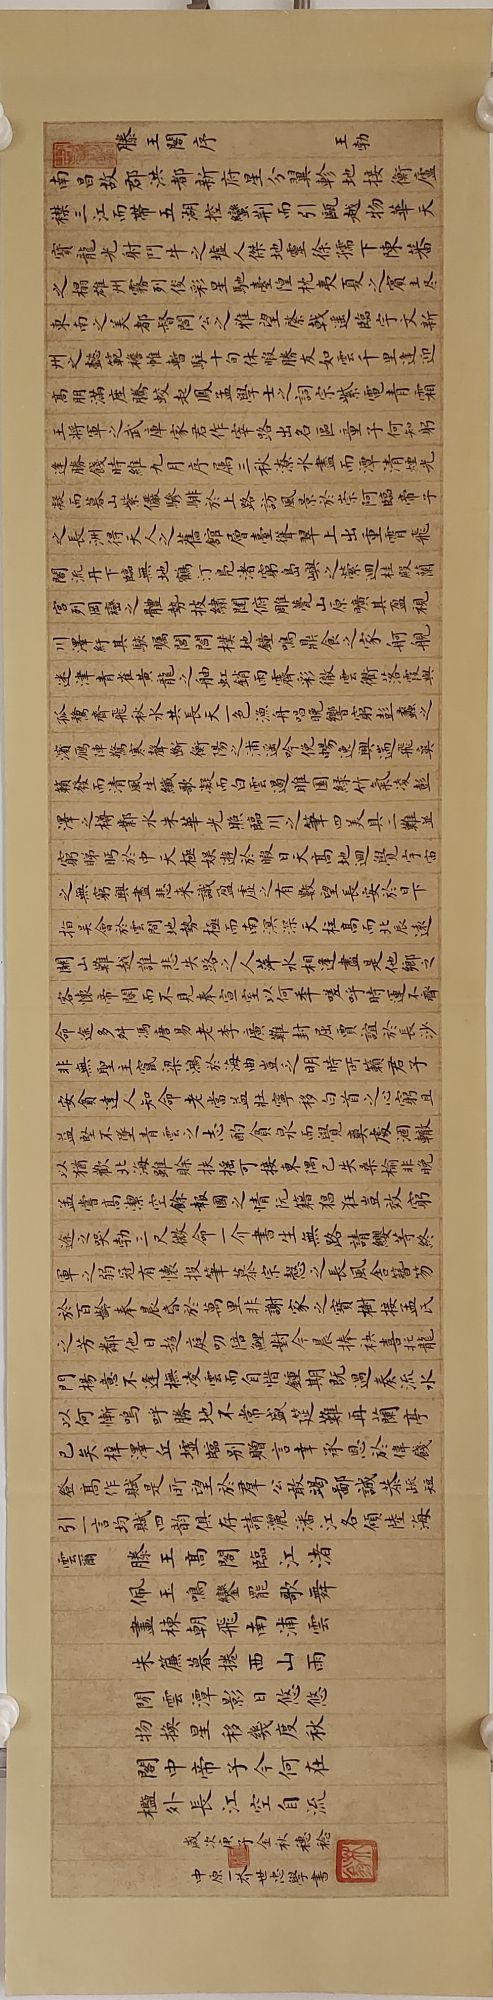 滕王閣序 王勃
南昌故郡洪都新府星分翼軫地接衡廬
襟三江而帶五湖控蠻荆而引甌越物華天
寶龍光射鬥牛之墟人傑地靈徐孺下陳蕃
之榻雄州霧列俊彩星馳臺隍枕夷夏之賓主盡
東南之美都督閻公之雅望棨戟遥臨宇文新
州之懿範襜帷暫駐十旬休暇勝友如雲千里逢迎
高朋滿座騰蛟起鳳孟學士之詞宗紫電青霜
王將軍之武庫家君作宰路出名區童子何知躬
逢勝餞時維九月序屬三秋潦水盡而潭清煙光
凝而暮山紫儼驂騑於上路訪風景於崇阿臨帝子
之長洲得天人之舊舘層臺聳翠上出重霄飛
閣流丹下臨無地鶴汀凫渚窮島嶼之縈迴桂殿蘭
宮列岡巒之體勢披繡闥俯雕甍山原曠其盈視
川澤紆其駭矚閭閻樸地鐘鳴鼎食之家舸艦
迷津青雀黄龍之舳虹銷雨霽彩徹雲衢落霞與
孤鶩齊飛秋水共長天一色漁舟唱晚響窮彭蠡之
濱鴈陣驚寒聲斷衡陽之浦遥吟俛暢逸興遄飛爽
籟發而清風生纖歌凝而白雲遏睢園緑竹氣凌彭
澤之樽鄴水朱華光照臨川之筆四美具二難並
窮睇眄於中天極娱遊於暇日天高地迥覺宇宙
之無窮興盡悲來識盈虚之有數望長安於日下
指吴會於雲間地勢極而南溟深天柱高而北辰遠
關山難越誰悲失路之人萍水相逢盡是他鄉之
客懷帝閽而不見奉宣室以何年嗟呼時運不齊
命途多舛馮唐易老李廣難封屈賈誼於長沙
非無聖主竄梁鴻於海曲豈之明時所籟君子
安貧達人知命老當益壯寧移白首之心窮且
益堅不墜青雲之志酌貪泉而覺爽處涸轍
以猶歡北海雖賒扶摇可接東隅已失桑榆非晚
孟嘗高潔空餘報國之情阮籍猖狂豈效窮
途之哭勃三尺微命一介書生無路請纓等終
軍之弱冠有懷投筆慕宗慤之長風舍簪笏
於百齡奉晨昏於萬里非謝家之寶樹接孟氏
之芳鄰他日趨庭叨陪鯉對今晨捧袂喜托龍
門楊意不逢撫凌雲而自惜鍾期既遇奏流水
以何慚嗚呼勝地不常盛筵難再蘭亭
已矣梓澤丘墟臨别贈言幸承恩於偉餞
登高作賦是所望於羣公敢竭鄙誠恭疏短
引一言均賦四韵俱存請灑潘江各傾陸海
雲爾
滕王高閣臨江渚
佩玉鳴鑾罷歌舞
畫棟朝飛南浦雲
朱簾暮捲西山雨
閒雲潭影日悠悠
物換星移幾度秋
閣中帝子今何在
檻外長江空自流
歲次庚子金秋穗稔
中原一岑世忠學書